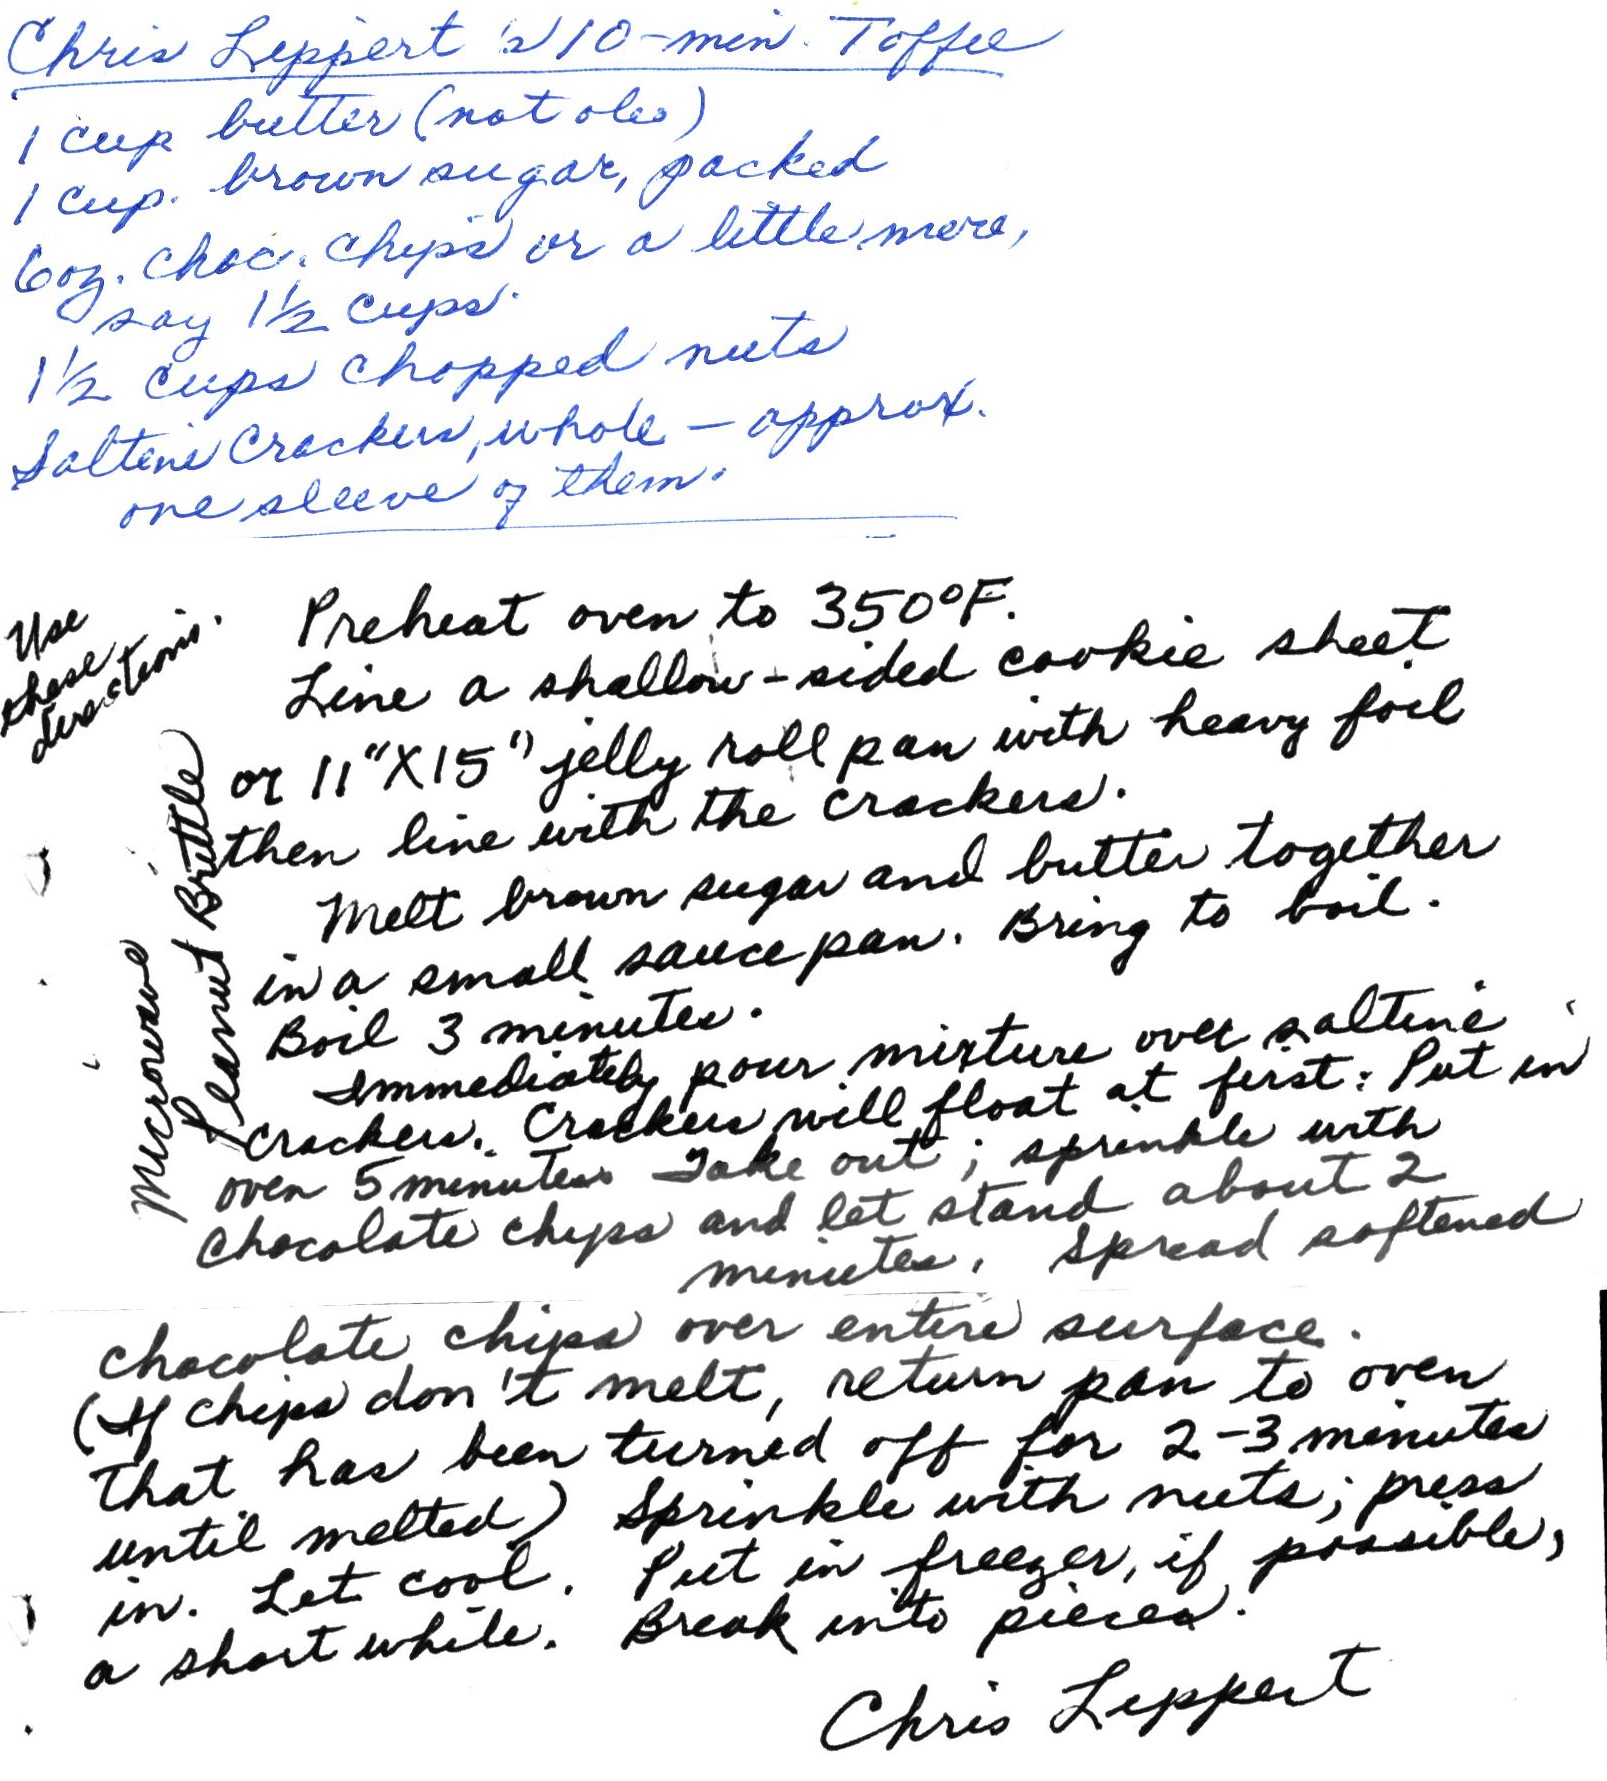 Chris Leppert's 10-min. Toffee
1 cup butter (not oleo)
1 cup. brown sugar, packed
6 oz. choc. chips or a little more,
say 1½ cups.
1½ cups chopped nuts
Saltine Crackers, whole - approx.
one sleeve of them.
Use
these
directions.
Microwave
Peanut Brittle
Preheat oven to 350°F.
Line a shallow-sided cookie sheet
or 11"X15" jelly roll pan with heavy foil
then line with the crackers.
Melt brown sugar and butter together
in a small sauce pan. Bring to boil.
Boil 3 minutes.
Immediately pour mixture over saltine
crackers. Crackers will float at first. Put in
oven 5 minutes. Take out; sprinkle with
chocolate chips and let stand about 2
minutes. Spread softened
chocolate chips over entire surface.
(If chips don't melt, return pan to oven
that has been turned off for 2-3 minutes
until melted) Sprinkle with nuts; press
in. Let cool. Put in freezer, if possible,
a short while. Break into pieces.
Chris Leppert